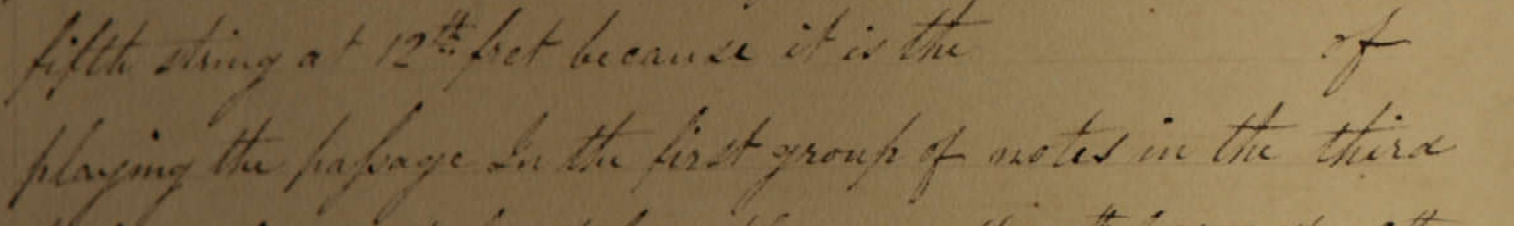 fifth string at 12th fret because it is the of
playing the passage In the first group of notes in the third